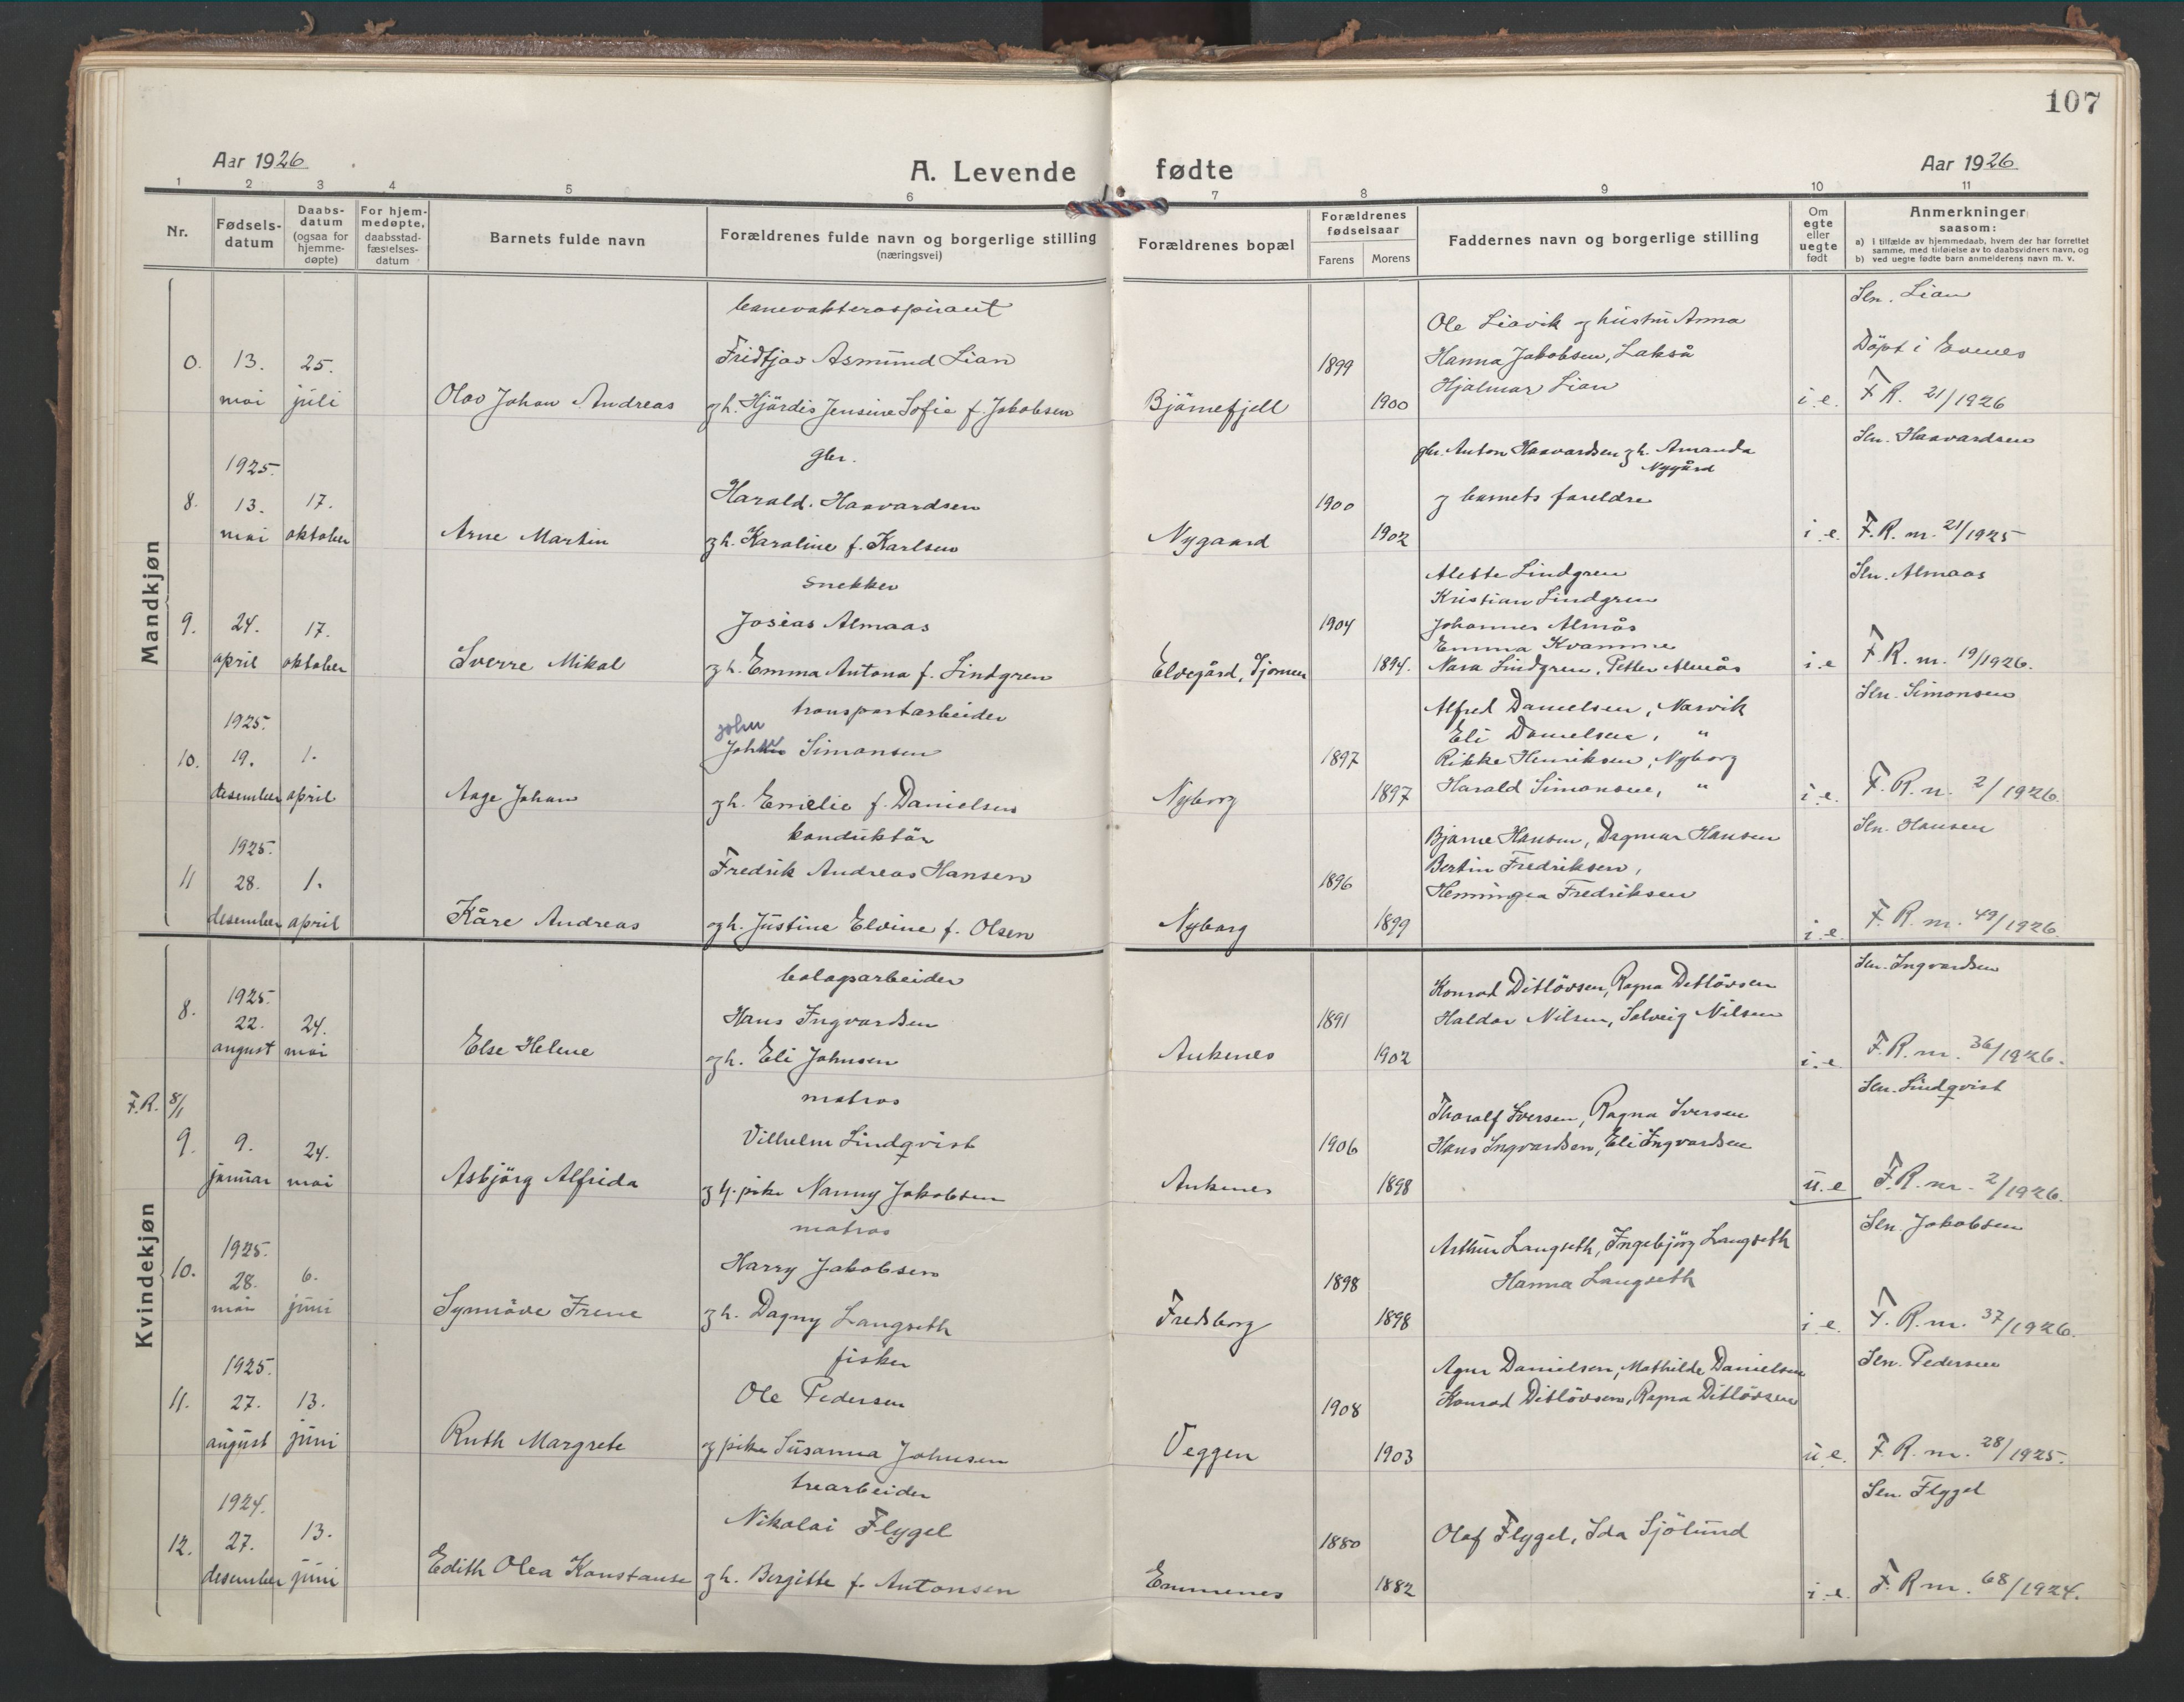 107
Aar 1926
A. Levende fødte
Aar 1926
1 2 3 4 5 6 7 8 9 10 11
Nr.
Fødsels-
datum
Daabs-
datum
(ogsaa for
hjemme-
døpte)
For hjem-
medøpte,
daabsstad-
fæstelses-
datum
Barnets fulde navn
Forældrenes fulde navn og borgerlige stilling
(næringsvei)
Forældrenes bopæl
Forældrenes
fødselsaar
Farens Morens
Faddernes navn og borgerlige stilling
Om
egte
eller
uegte
født
Anmerkninger
saasom:
a) i tilfælde av hjemmedaab, hvem der har forrettet
samme, med tilføielse av to daabsvidners navn, og
b) ved uegte fødte barn anmelderens navn m. v.
Mandkjøn
banevokteraspirant
Sln. Lian
Ole Liavik og hustru Anna
0. 13. 25. Fridtjov Asmund Lian 1899 Hanna Jakobsen, Lakså Döpt i Evenes
mai juli Olav Johan Andreas gh. Hjördis Jensine Sofie f. Jakobsen Björnefjell 1900 Hjalmar Lian i.e. F R. 21/1926
1925. gbr. gbr. Anton Haavardsen gh. Amanda Sln. Haavardsen
Nygård
8. 13. 17. Harald. Haavardsen 1900 og barnets foreldre
mai oktober Arne Martin gh. Karoline f. Karlsen Nygaard 1902 i.e. F.R. nr. 21/1925
snekker Alette Lindgren Sln. Almaas
Kristian Lindgren
9. 24. 17. Josias Almaas 1904 Johannes Almås
Emma Kvamme
april oktober Sverre Mikal gh. Emma Antona f. Lindgren Elvegård, Tjomen 1894. Nara Lindgren, Petter Almås i.e F.R. nr. 19/1926.
1925. transportarbeider Alfred Danielsen, Narvik Sln. Simonsen
John
Eli Danielsen, "
10. 19. 1. Johan Simonsen 1897 Rikke Henriksen, Nyborg
desember april Aage Johan gh. Emelie f. Danielsen Nyborg 1897 Harald Simonsen, " i.e. F.R. n. 2/1926.
1925. konduktör Bjarne Hansen, Dagmar Hansen Sln. Hansen
Bertin Fredriksen,
11 28. 1. Fredrik Andreas Hansen 1896 Henningea Fredriksen
desember april Kåre Andreas gh. Justine Elvine f. Olsen Nyborg 1899 i.e. F.R. nr. 49/1926.
Kvindekjøn
bolagsarbeider Sln. Ingvardsen
8. 1925. Konrad Ditlövsen, Ragna Ditlövsen
22. 24. Hans Ingvardsen 1891 Haldor Nilsen, Solveig Nilsen
august mai Else Helene gh. Eli Johnsen Ankenes 1902 i.e. F.R. nr. 36/1926.
F.R. 8/1 matros Sln. Lindqvist
Thoralf Iversen, Ragna Iversen
9. 9. 24. Vilhelm Lindqvist 1906 Hans Ingvardsen, Eli Ingvardsen
januar mai Asbjörg Alfrida og pike Nanny Jakobsen Ankenes 1898 u.e F.R. nr. 2/1926.
matros Sln. Jakobsen
1925. Arthur Langseth, Ingebjörg Langseth
10. 28. 6. Harry Jakobsen 1898 Hanna Langseth
mai juni Synnöve Irene gh. Dagny Langseth Fredsborg 1898 i.e. F.R. nr. 37/1926.
1925. fisker Agnr Danielsen, Mathilde Danielsen Sln. Pedersen
11. 27. 13. Ole Pedersen 1908 Konrad Ditlövsen, Ragna Ditlövsen
august juni Ruth Margrete og pike Susanna Johnsen Veggen 1903 u.e. F.R. nr. 28/1925.
1924. trearbeider Sln. Flygel
12. 27. 13. Nikolai Flygel 1880 Olaf Flygel, Ida Sjölund
desember juni Edith Olea Konstanse gh. Bergitte f. Antonsen Emmenes 1882 i.e. F.R nr. 68/1924.